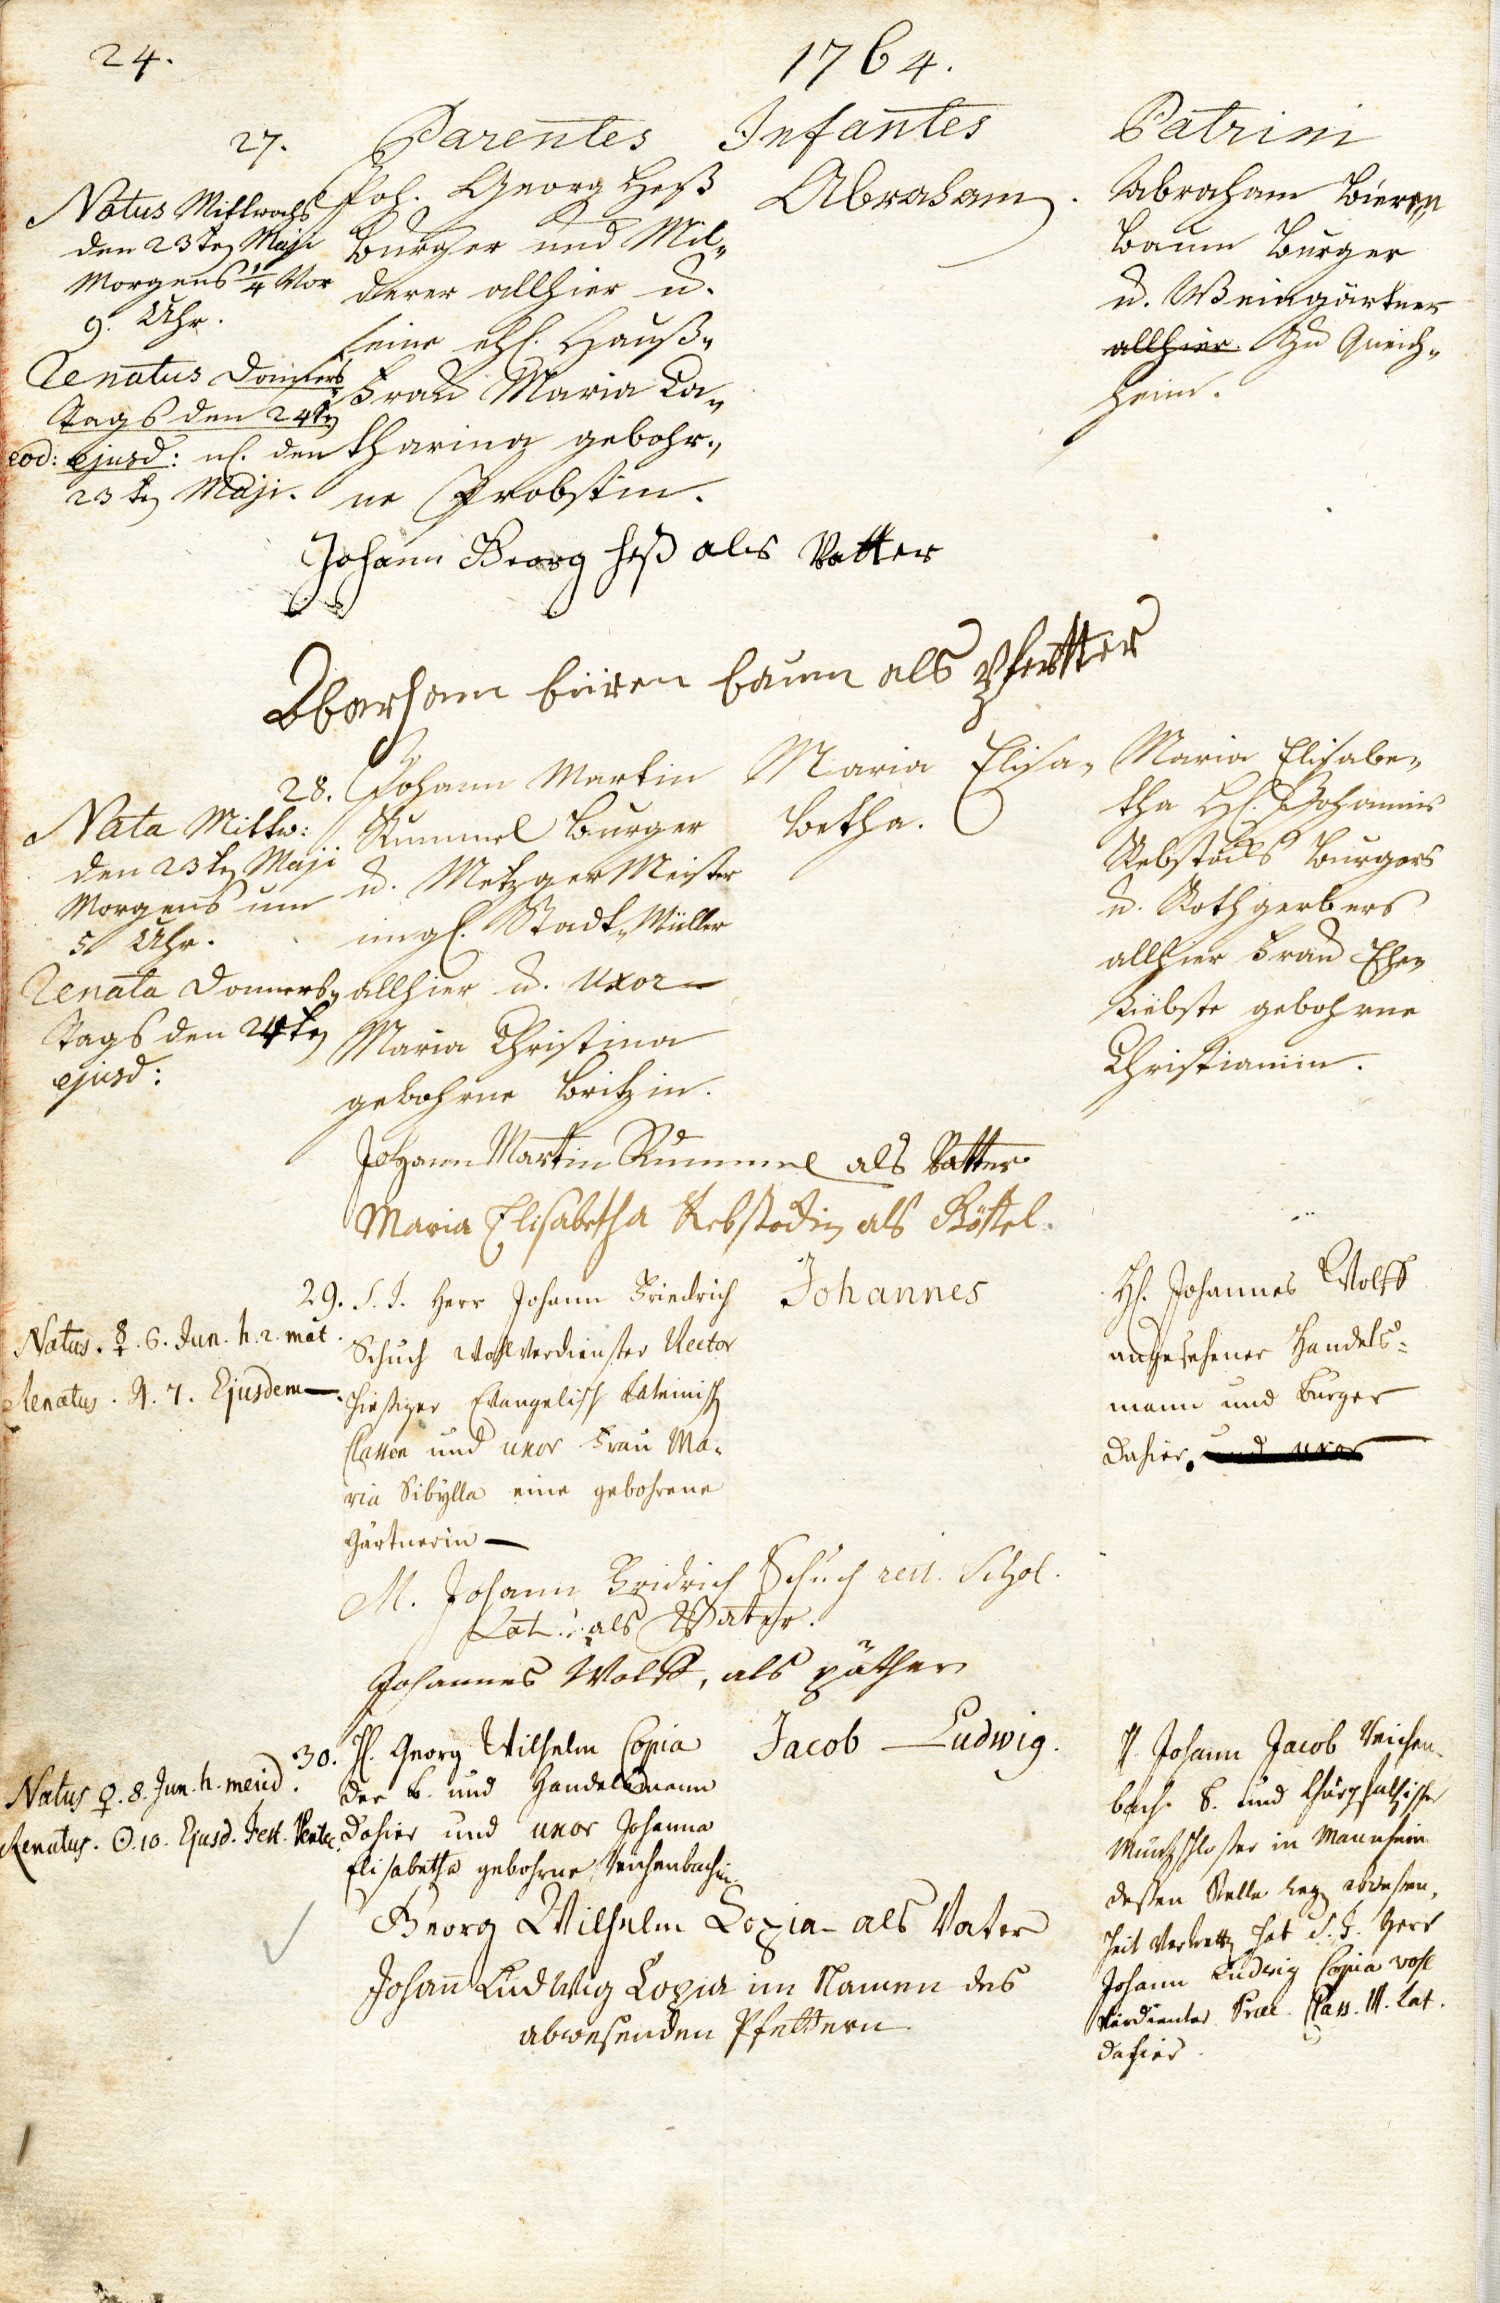 24.
1764.
Parentes Infantes Patrini
27.
Natus Mittwochs
den 23ten Maji
Morgens 1/4 Vor
9. Uhr.
Renatus Donners
tags den 24ten
eod: ejusd: nl. den
23ten Maji.
Joh. Georg Heß
Burger und Mil-
derer allhier u.
seine ehl. Hauß-
Frau Maria Ca-
tharina gebohr-
ne Probstin.
Abraham.
Abraham Bieren
Baum Burger
u. Weingärtner
allhier. Zu Queich-
heim.
Johann Georg Heß als Vatter
Abarham biiren baum als Pfetter
28.
Nata Mittw:
den 23ten Maji
Morgens um
5 Uhr.
Renata Donners-
tags den 24ten
ejusd:
Johann Martin
Rummel Burger
u. Metzger Meister
ingl. Stadt-Müller
allhier u. Uxor
Maria Christina
gebohrne Britzin.
Maria Elisa-
betha.
Maria Elisabe-
tha Hl. Johannis
Rebstocks Burgers
u. Rothgerbers
allhier Frau Ehe-
Liebste gebohrne
Christianin.
Johann Martin Rummel als Vatter
Maria Elisabetha Rebstockin als Göttel.
29.
Natus. ☿. 6. Jun. h. 2. mat.
Renatus. ♃. 7. Ejusdem
S. T. Herr Johann Friedrich
Schuch wohlverdienster Rector
hiesiger Evangelisch Lateinisch
Classen und uxor Frau Ma-
ria Sibylla eine gebohrene
Gärtnerin
Johannes
Hl. Johannes Wolff
angesehener Handels-
mann und Burger
dahier. und uxor
M. Johann Fridrich Schuch rect. Schol.
Lat. als Vater.
Johannes Wolff, als päther
30.
Natus ♀. 8. Jun. h. merid.
Renatus. ☉. 10. Ejusd. Fest. Pentec.
H. Georg Wilhelm Copia
der B. und Handelsmann
dahier und uxor Johanna
Elisabetha gebohrne Reichenbachin
Jacob Ludwig.
H. Johann Jacob Reichen-
bach B. und Churpfaltzischer
Müntzschlosser in Mannheim
dessen Stelle bey abwesen-
heit vertretten hat S. T. Herr
Johann Ludwig Copia wohl
verdienter Præc. Class. III. Lat.
dahier.
Georg Wilhelm Copia als Vater
Johann Ludwig Copia im Namen des
abwesenden Pfettern